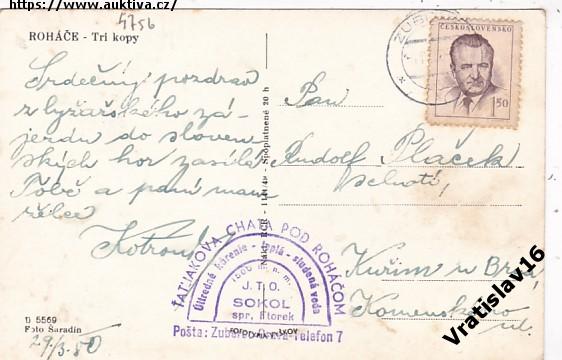 https://www.auktiva.cz/
4756
ROHÁČE - Tri kopy
Srdečný pozdrav
z lyžařského zá-
jezdu do sloven
ských hor zasílá
Tobě a paní man
želce
Kotrou
B 5569
Foto Šaradin
29/3. 50
ČESKOSLOVENSKO
1.50
Pan
Rudolf Plaček
Kuřim u Brna
Komenského
ul.
TATLIAKOVA CHATA POD ROHÁČOM
Ústredné kúrenie - teplá - studená voda
1380 m. n. m.
J. T. O.
SOKOL
spr. Florek
Pošta: Zuberec Telefon 7
Vratislav16